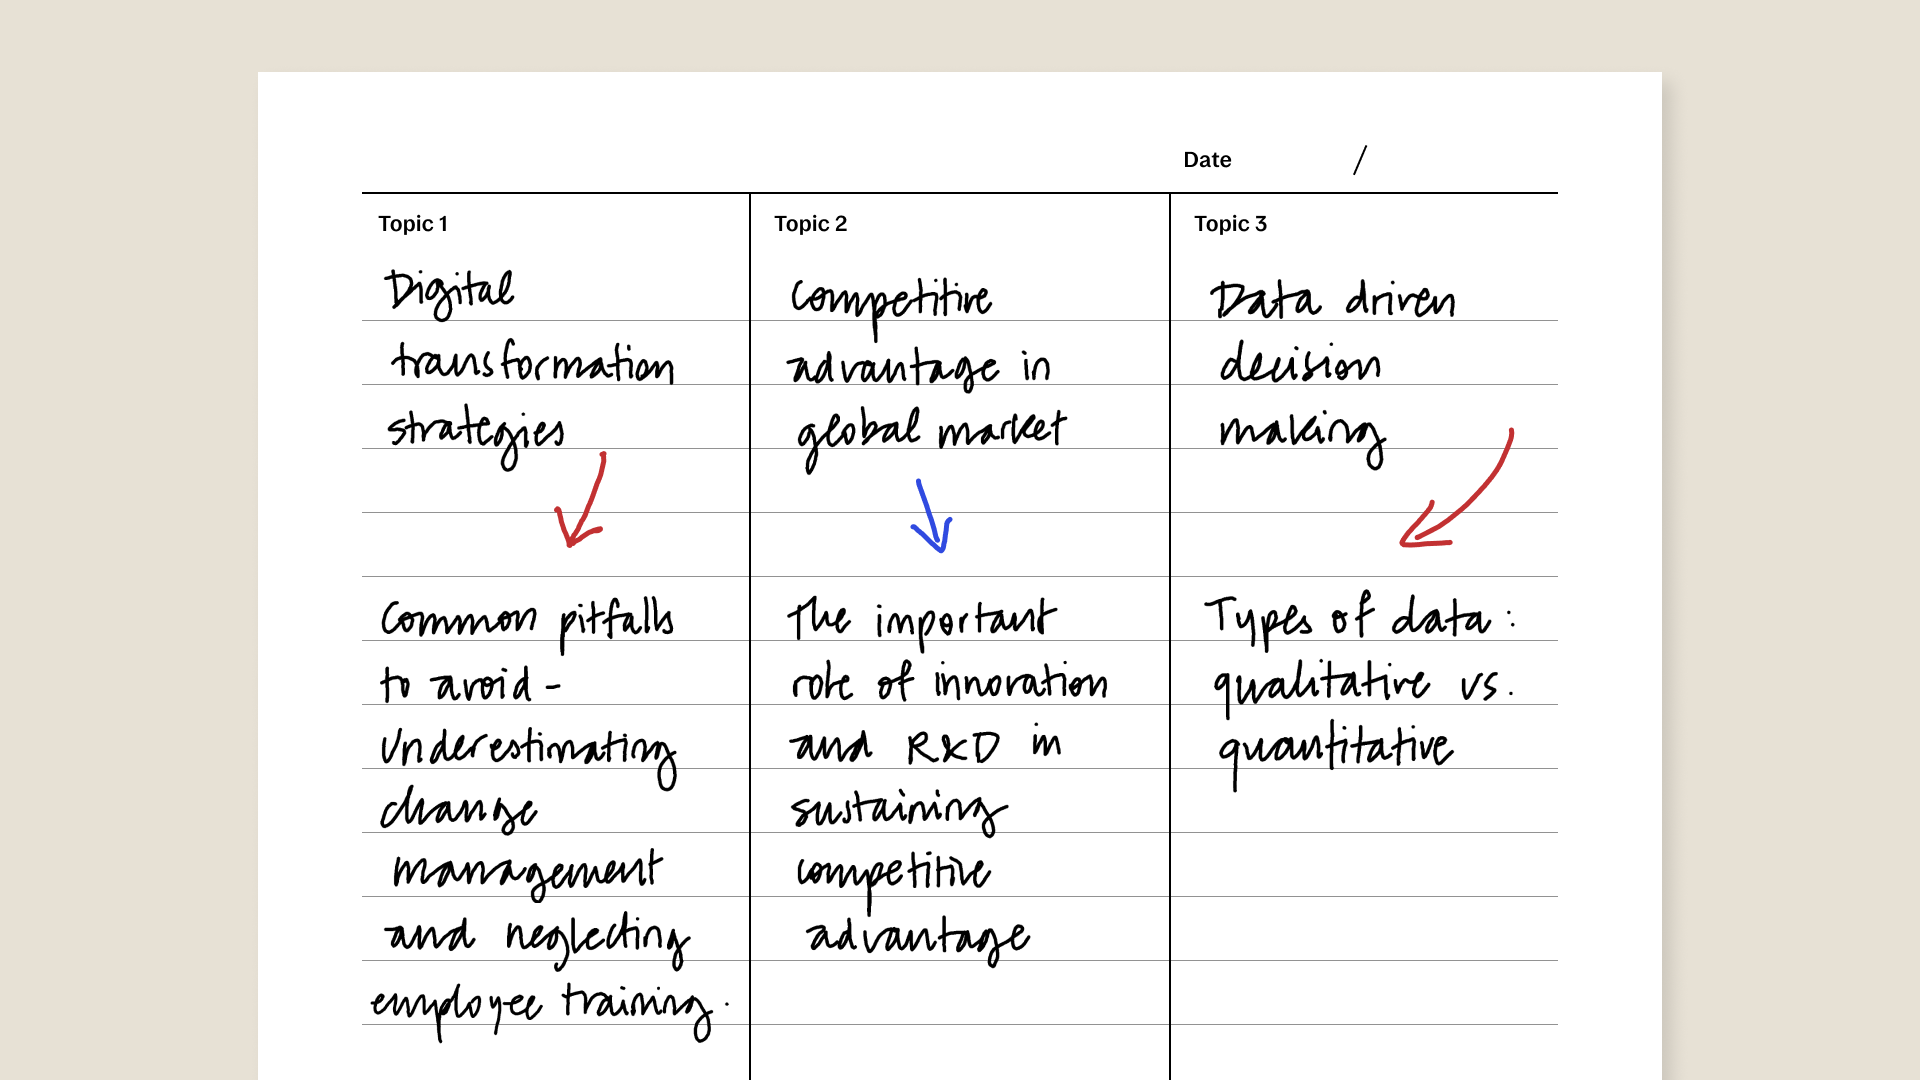 Date /
Topic 1
Digital
transformation
strategies
Common pitfalls
to avoid -
Underestimating
change
management
and neglecting
employee training.
Topic 2
Competitive
advantage in
global market
The important
role of innovation
and R&D in
sustaining
competitive
advantage
Topic 3
Data driven
decision
making
Types of data:
qualitative vs.
quantitative